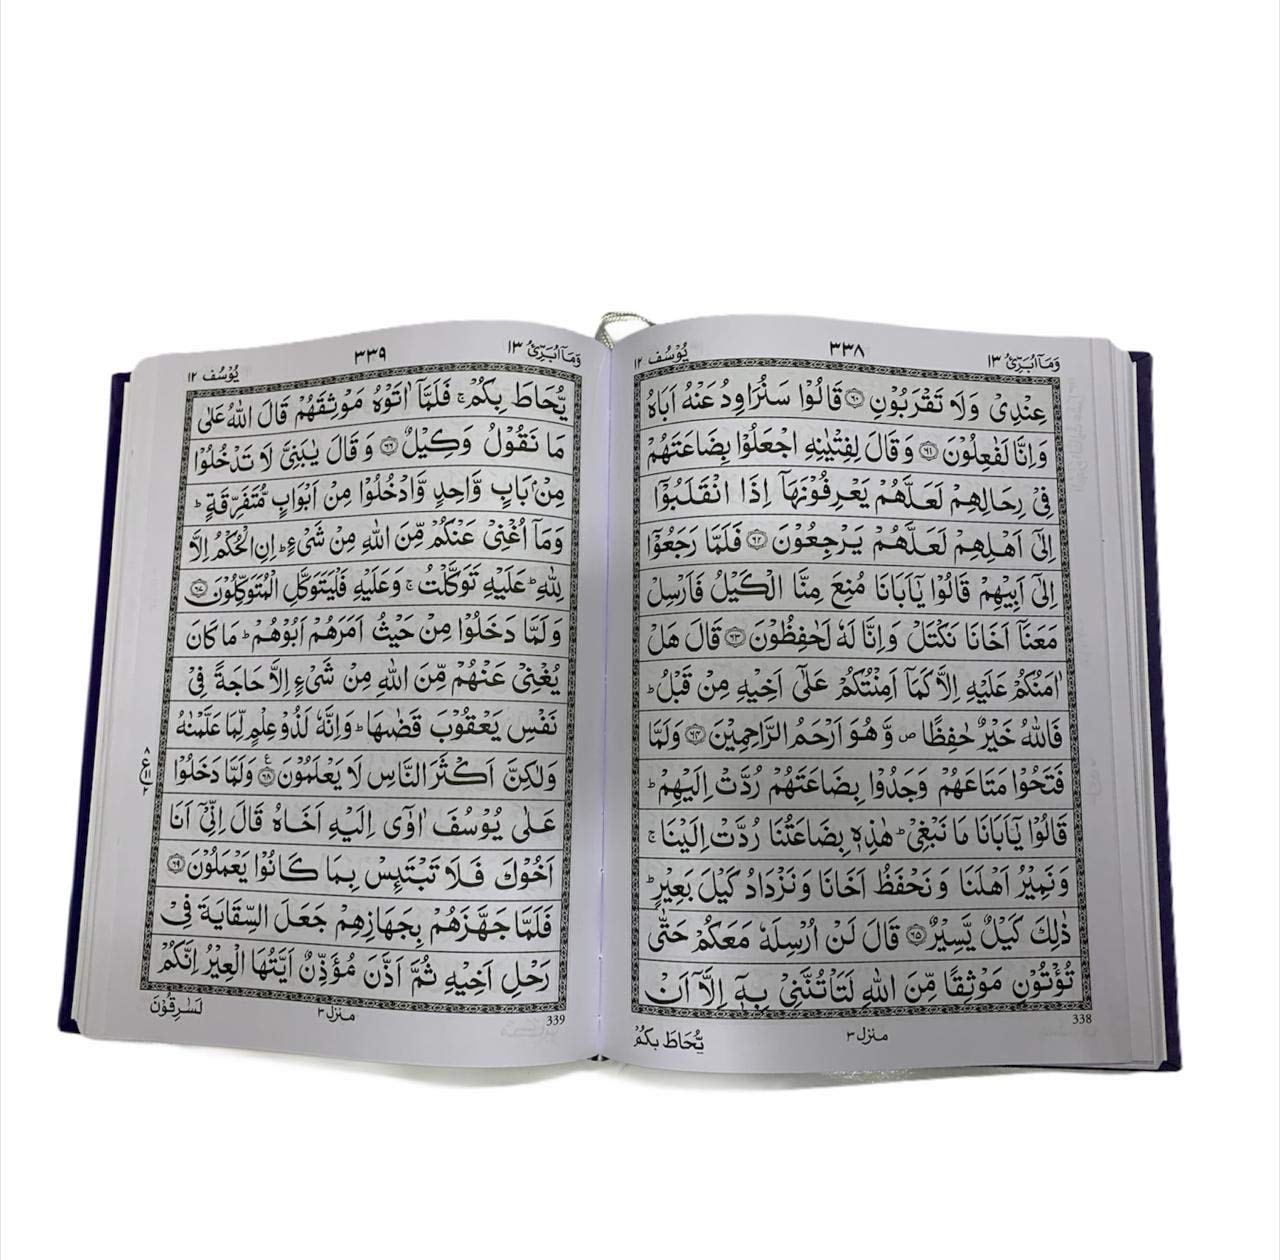 وَمَاۤ اُبَرِّئُ ١٣
٣٣٨
يُوْسُف ١٢
عِنْدِیْ وَلَا تَقْرَبُوْنِ ﴿٦٠﴾ قَالُوْا سَنُرَاوِدُ عَنْهُ اَبَاهُ
وَاِنَّا لَفٰعِلُوْنَ ﴿٦١﴾ وَقَالَ لِفِتْيٰنِهِ اجْعَلُوْا بِضَاعَتَهُمْ
فِیْ رِحَالِهِمْ لَعَلَّهُمْ يَعْرِفُوْنَهَاۤ اِذَا انْقَلَبُوْۤا
اِلٰۤی اَهْلِهِمْ لَعَلَّهُمْ يَرْجِعُوْنَ ﴿٦٢﴾ فَلَمَّا رَجَعُوْۤا
اِلٰۤی اَبِيْهِمْ قَالُوْا يٰۤاَبَانَا مُنِعَ مِنَّا الْكَيْلُ فَاَرْسِلْ
مَعَنَاۤ اَخَانَا نَكْتَلْ وَاِنَّا لَهٗ لَحٰفِظُوْنَ ﴿٦٣﴾ قَالَ هَلْ
اٰمَنُكُمْ عَلَيْهِ اِلَّا كَمَاۤ اَمِنْتُكُمْ عَلٰۤی اَخِيْهِ مِنْ قَبْلُ ؕ
فَاللّٰهُ خَيْرٌ حٰفِظًا ۪ وَّهُوَ اَرْحَمُ الرّٰحِمِيْنَ ﴿٦٤﴾ وَلَمَّا
فَتَحُوْا مَتَاعَهُمْ وَجَدُوْا بِضَاعَتَهُمْ رُدَّتْ اِلَيْهِمْ ؕ
قَالُوْا يٰۤاَبَانَا مَا نَبْغِیْ ؕ هٰذِهٖ بِضَاعَتُنَا رُدَّتْ اِلَيْنَا ۚ
وَنَمِيْرُ اَهْلَنَا وَنَحْفَظُ اَخَانَا وَنَزْدَادُ كَيْلَ بَعِيْرٍ ؕ
ذٰلِكَ كَيْلٌ يَّسِيْرٌ ﴿٦٥﴾ قَالَ لَنْ اُرْسِلَهٗ مَعَكُمْ حَتّٰی
تُؤْتُوْنِ مَوْثِقًا مِّنَ اللّٰهِ لَتَاْتُنَّنِیْ بِهٖۤ اِلَّاۤ اَنْ
338
منزل ٣
يُّحَاطَ بِكُمْ
وَمَاۤ اُبَرِّئُ ١٣
٣٣٩
يُوْسُف ١٢
يُّحَاطَ بِكُمْ ۚ فَلَمَّاۤ اٰتَوْهُ مَوْثِقَهُمْ قَالَ اللّٰهُ عَلٰی
مَا نَقُوْلُ وَكِيْلٌ ﴿٦٦﴾ وَقَالَ يٰبَنِیَّ لَا تَدْخُلُوْا
مِنْۢ بَابٍ وَّاحِدٍ وَّادْخُلُوْا مِنْ اَبْوَابٍ مُّتَفَرِّقَةٍ ؕ
وَمَاۤ اُغْنِیْ عَنْكُمْ مِّنَ اللّٰهِ مِنْ شَیْءٍ ؕ اِنِ الْحُكْمُ اِلَّا
لِلّٰهِ ؕ عَلَيْهِ تَوَكَّلْتُ ۚ وَعَلَيْهِ فَلْيَتَوَكَّلِ الْمُتَوَكِّلُوْنَ ﴿٦٧﴾
وَلَمَّا دَخَلُوْا مِنْ حَيْثُ اَمَرَهُمْ اَبُوْهُمْ ؕ مَا كَانَ
يُغْنِیْ عَنْهُمْ مِّنَ اللّٰهِ مِنْ شَیْءٍ اِلَّا حَاجَةً فِیْ
نَفْسِ يَعْقُوْبَ قَضٰىهَا ؕ وَاِنَّهٗ لَذُوْ عِلْمٍ لِّمَا عَلَّمْنٰهُ
وَلٰكِنَّ اَكْثَرَ النَّاسِ لَا يَعْلَمُوْنَ ﴿٦٨﴾ وَلَمَّا دَخَلُوْا
عَلٰی يُوْسُفَ اٰوٰۤی اِلَيْهِ اَخَاهُ قَالَ اِنِّیْۤ اَنَا
اَخُوْكَ فَلَا تَبْتَئِسْ بِمَا كَانُوْا يَعْمَلُوْنَ ﴿٦٩﴾
فَلَمَّا جَهَّزَهُمْ بِجَهَازِهِمْ جَعَلَ السِّقَايَةَ فِیْ
رَحْلِ اَخِيْهِ ثُمَّ اَذَّنَ مُؤَذِّنٌ اَيَّتُهَا الْعِيْرُ اِنَّكُمْ
٨
ع
١١
٢
339
منزل ٣
لَسٰرِقُوْنَ